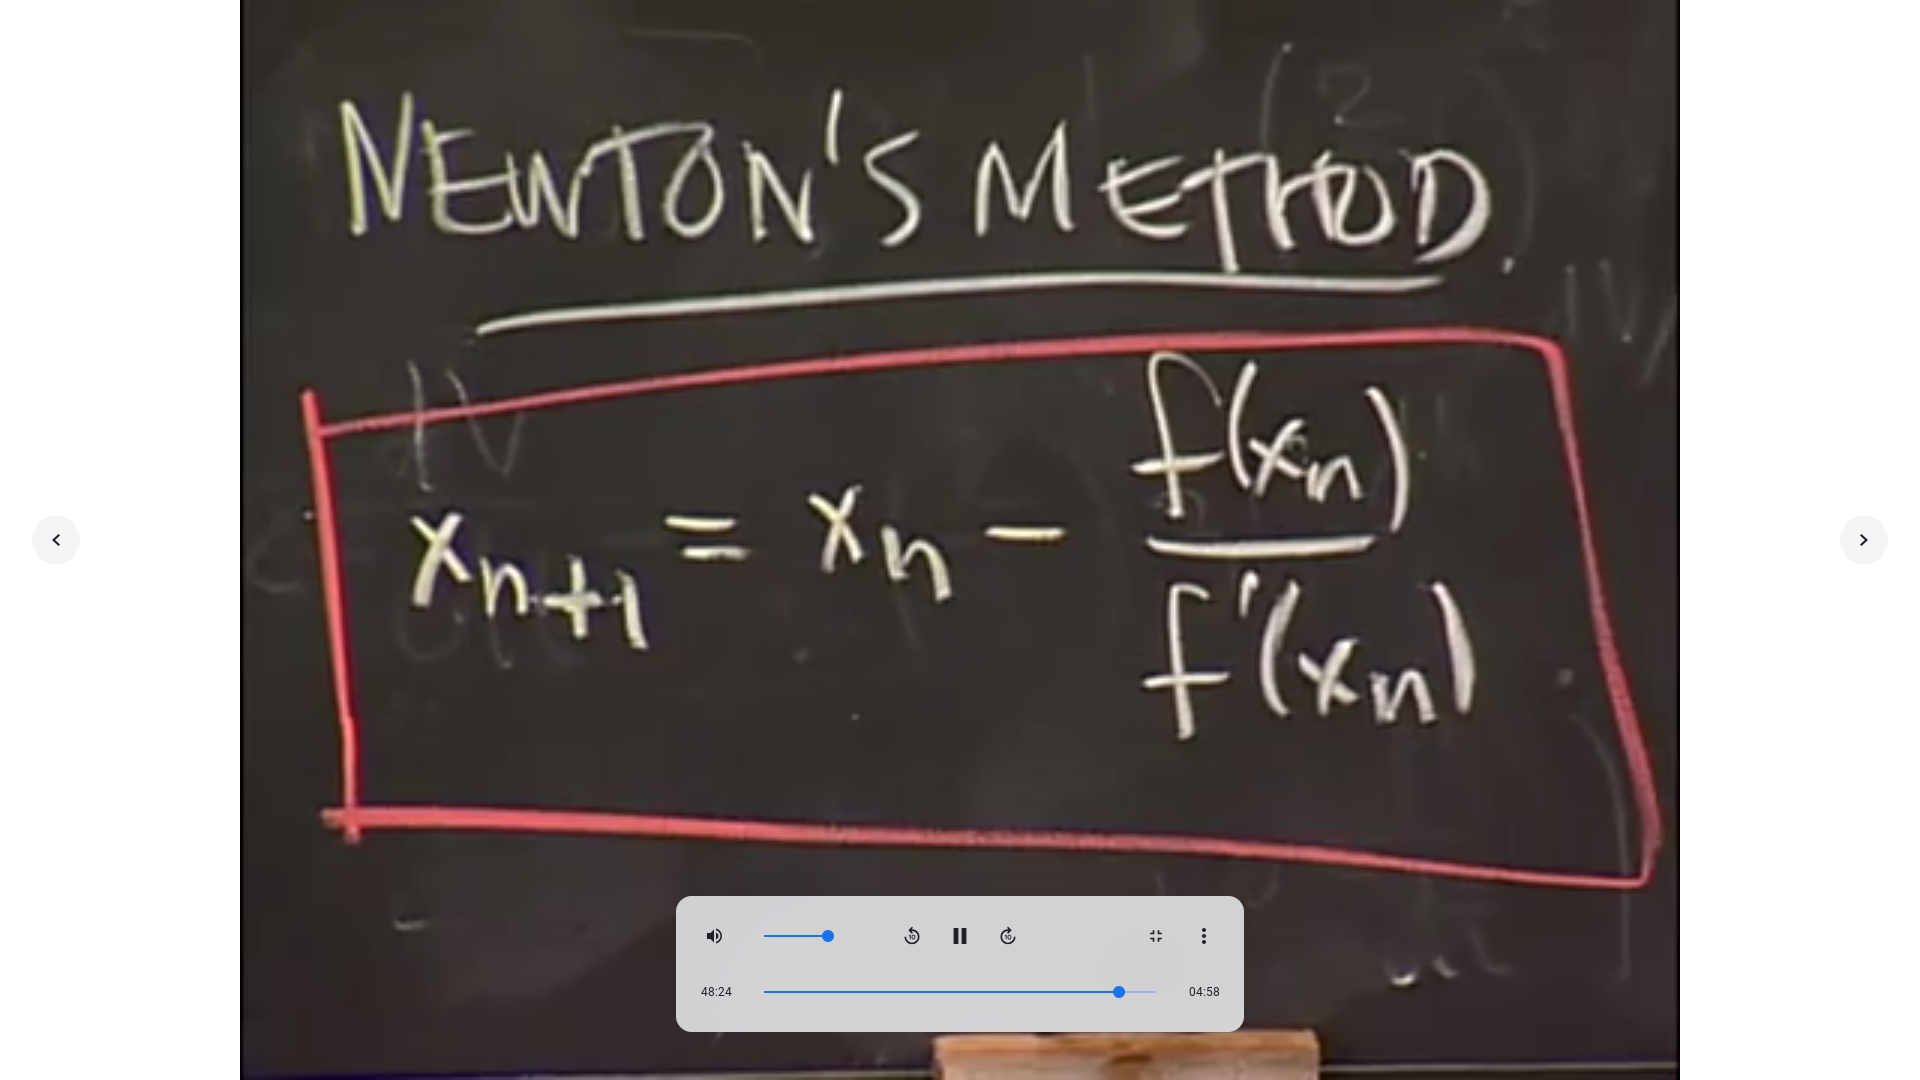 NEWTON'S METHOD.
x_{n+1} = x_n - \frac{f(x_n)}{f'(x_n)}
48:24 04:58